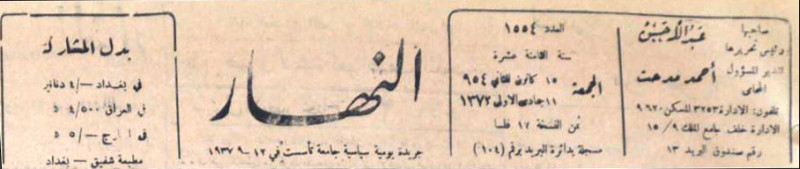 صاحبها
ورئيس تحريرها
عبد الله حسن
المدير المسؤول
المحامي
أحمد مدحت
تلفون: الادارة ٣٢٥٣ المسكن ٩٦٢٠
الادارة خلف جامع الملك ١٥/٩
رقم صندوق البريد ١٣
العدد ١٥٥٤
سنة الثامنة عشرة
الجمعة
١٥ كانون الثاني ٩٥٤
١١ جمادى الاولى ١٣٧٣
ثمن النسخة ١٢ فلسا
مسجلة بدائرة البريد برقم (١٠٤)
النهار
جريدة يومية سياسية جامعة تأسست في ١٢-٩-١٩٣٧
بدل المشاركة
في بغداد -/٤ دنانير
في العراق ٤/٥٠٠
في الخارج -/٥
مطبعة شفيق - بغداد